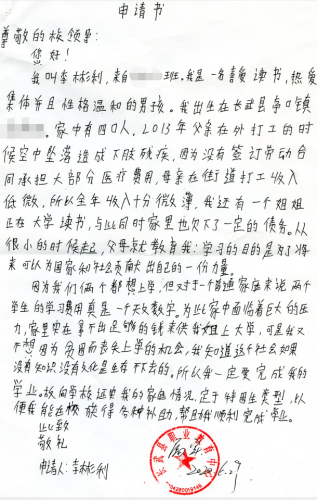 申请书
尊敬的校领导:
您好!
我叫李彬利,来自班。我是一名喜爱读书,热爱
集体并且性格温和的男孩。我出生在长武县亭口镇
。家中有四口人,2013年父亲在外打工的时
候空中坠落造成下肢残疾,因为没有签订劳动合
同承担大部分医疗费用,母亲在街道打工收入
低微,所以全年收入十分微薄,我还有一个姐姐
正在大学读书,与此同时家里也欠下了一定的债务。从
很小的时候起,父母就教育我:学习的目的是为了将
来可以为国家和社会贡献出自己的一份力量。
因为我们俩个都想上学,但对于一个普通家庭来说两个
学生的学习费用真是一个天文数字。为此家中面临着巨大的压
力,家里实在拿不出足够的钱来供我姐上大学,可是我又
不想因为贫困而丧失上学的机会,我知道这个社会如果
没有知识没有文化是生存不下去的,所以我一定要完成我的
学业。故向学校述史我的家庭情况,定于特困生类型,以
便我能在校获得各种补助,帮助我顺利完成学业。
此致
敬礼
申请人:李彬利
2020.6.29
长武县职业教育中心